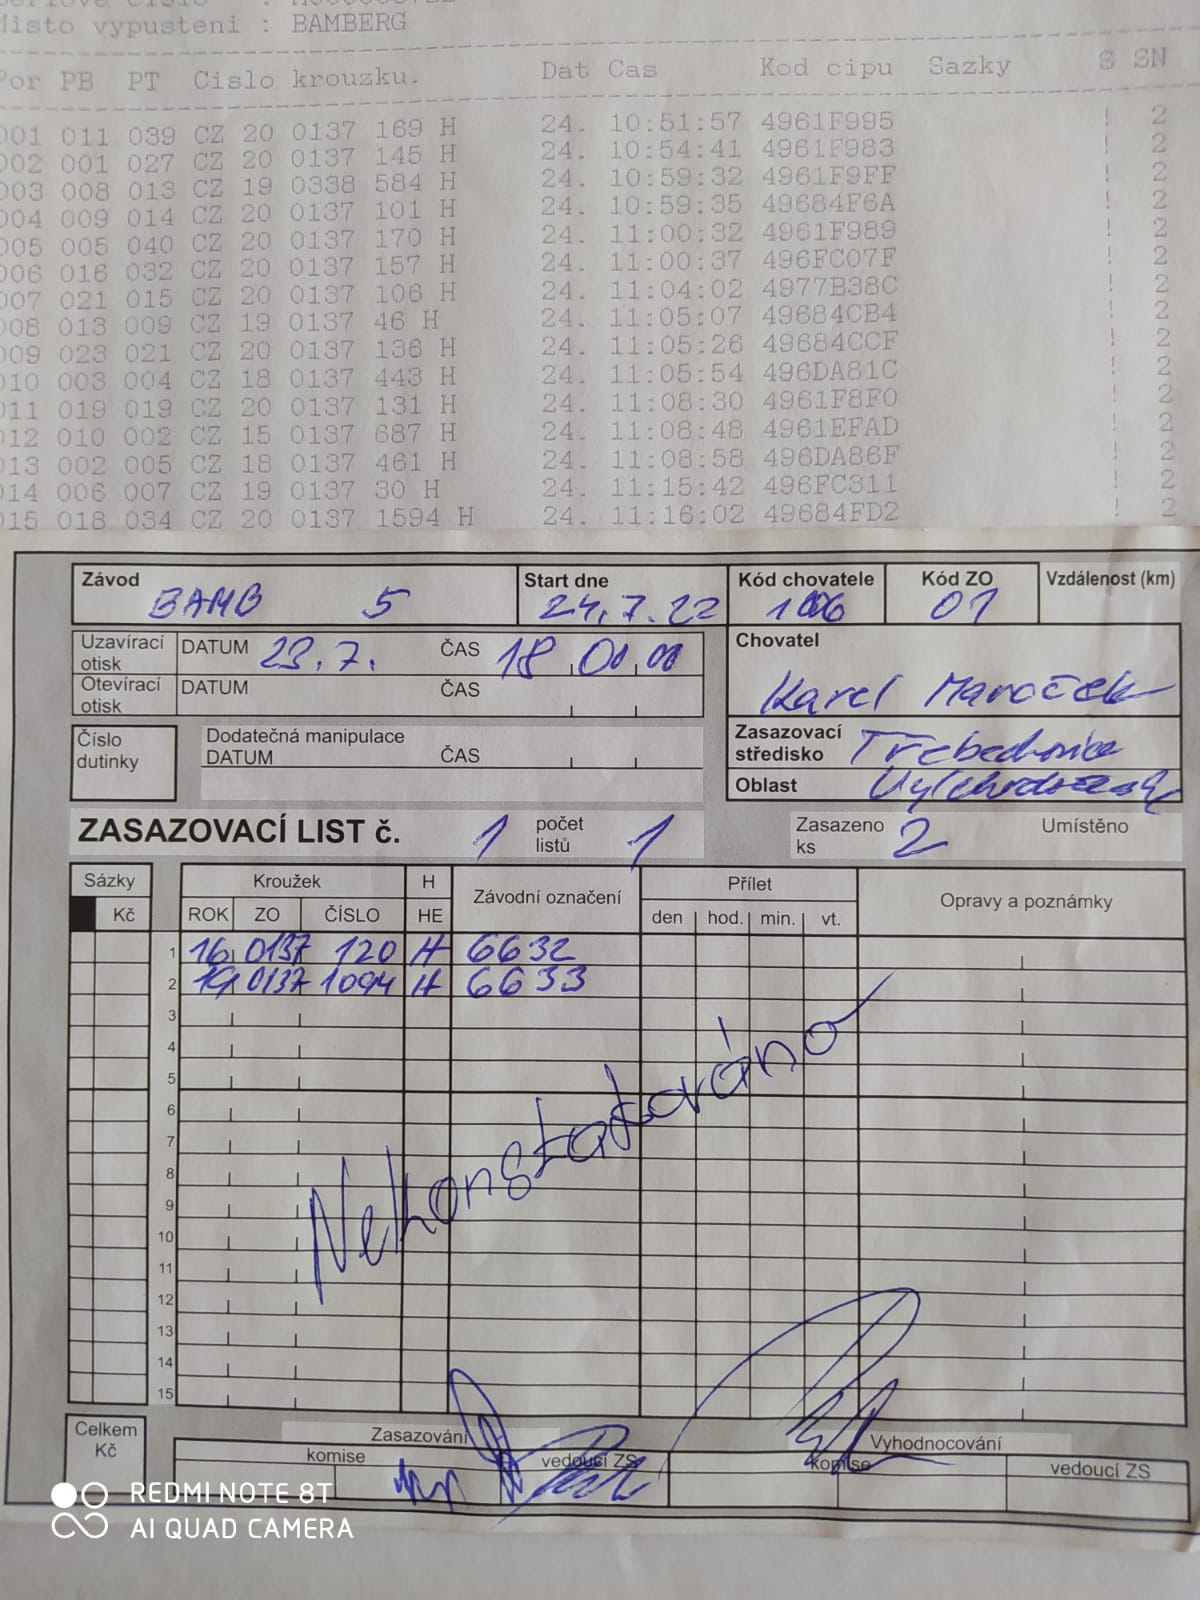 Misto vypusteni : BAMBERG
Por PB PT Cislo krouzku. Dat Cas Kod cipu Sazky S SN
001 011 039 CZ 20 0137 169 H 24. 10:51:57 4961F995 ! 2
002 001 027 CZ 20 0137 145 H 24. 10:54:41 4961F983 ! 2
003 008 013 CZ 19 0338 584 H 24. 10:59:32 4961F9FF ! 2
004 009 014 CZ 20 0137 101 H 24. 10:59:35 49684F6A ! 2
005 005 040 CZ 20 0137 170 H 24. 11:00:32 4961F989 ! 2
006 016 032 CZ 20 0137 157 H 24. 11:00:37 496FC07F ! 2
007 021 015 CZ 20 0137 106 H 24. 11:04:02 4977B38C ! 2
008 013 009 CZ 19 0137 46 H 24. 11:05:07 49684CB4 ! 2
009 023 021 CZ 20 0137 136 H 24. 11:05:26 49684CCF ! 2
010 003 004 CZ 18 0137 443 H 24. 11:05:54 496DA81C ! 2
011 019 019 CZ 20 0137 131 H 24. 11:08:30 4961F8F0 ! 2
012 010 002 CZ 15 0137 687 H 24. 11:08:48 4961EFAD ! 2
013 002 005 CZ 18 0137 461 H 24. 11:08:58 496DA86F ! 2
014 006 007 CZ 19 0137 30 H 24. 11:15:42 496FC311 ! 2
015 018 034 CZ 20 0137 1594 H 24. 11:16:02 49684FD2 ! 2
Závod BAMB 5 Start dne 24.7.22 Kód chovatele 106 Kód ZO 01 Vzdálenost (km)
Uzavírací otisk DATUM 23.7. ČAS 18 00 00
Otevírací otisk DATUM ČAS
Chovatel Karel Maroček
Číslo dutinky Dodatečná manipulace DATUM ČAS
Zasazovací středisko Třebechovice
Oblast
ZASAZOVACÍ LIST č. 1 počet listů 1 Zasazeno ks 2 Umístěno
Sázky Kroužek H Závodní označení Přílet Opravy a poznámky
Kč ROK ZO ČÍSLO HE den hod. min. vt.
1 16 0137 120 H 6632
2 19 0137 1094 H 6633
3
4
5
6
7
8
9
10
11
12
13
14
15
Nekonstatováno
Celkem Kč Zasazování Vyhodnocování
komise vedoucí ZS komise vedoucí ZS
REDMI NOTE 8T
AI QUAD CAMERA